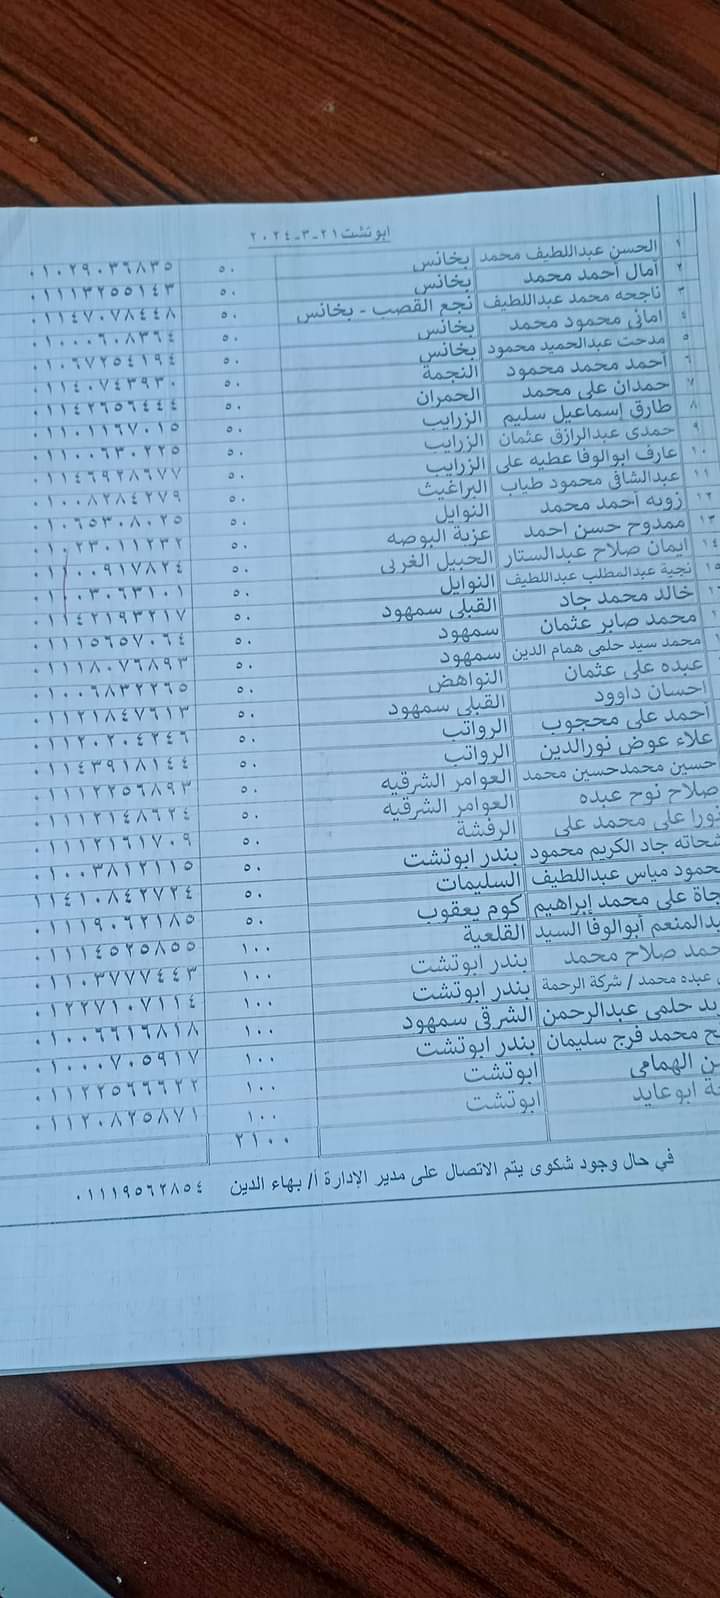 ابوتشت ٢١-٣-٢٠٢٤
١ الحسن عبداللطيف محمد بخانس ٥٠ ٠١٠٢٩٠٣٦٨٣٥
٢ آمال أحمد محمد بخانس ٥٠ ٠١١١٣٢٥٥١٤٣
٣ ناجحه محمد عبداللطيف نجع القصب - بخانس ٥٠ ٠١١٤٧٠٧٨٤٤٨
٤ امانى محمود محمد بخانس ٥٠ ٠١٠٠٠٦٠٨٣٦٤
٥ مدحت عبدالحميد محمود بخانس ٥٠ ٠١٠٦٧٢٥٤١٩٤
٦ أحمد محمد محمود النجمة ٥٠ ٠١١٤٠٧٤٣٩٣٠
٧ حمدان على محمد الحمران ٥٠ ٠١١٤٢٦٥٦٤٤٤
٨ طارق إسماعيل سليم الزرايب ٥٠ ٠١١٠١١٦٧٠١٥
٩ حمدى عبدالرازق عثمان الزرايب ٥٠ ٠١١٠٠٦٣٠٢٢٥
١٠ عارف ابوالوفا عطيه على الزرايب ٥٠ ٠١١٤٦٩٢٨٦٧٧
١١ عبدالشافى محمود طياب البراغيث ٥٠ ٠١٠٠٨٢٨٤٢٧٩
١٢ زوبه أحمد محمد النوايل ٥٠ ٠١٠٦٥٣٠٨٠٢٥
١٣ ممدوح حسن احمد عزبة البوصه ٥٠ ٠١٠٢٣٠١١٢٣٢
١٤ ايمان صلاح عبدالستار الحبيل الغربى ٥٠ ٠١١٠٠٩١٧٨٢٤
١٥ نجية عبدالمطلب عبداللطيف النوايل ٥٠ ٠١١٠٣٠٦٣١٠١
خالد محمد جاد القبلى سمهود ٥٠ ٠١١٤٢١٩٣٢١٧
محمد صابر عثمان سمهود ٥٠ ٠١١١٥٦٥٧٠٦٤
محمد سيد حلمى همام الدين سمهود ٥٠ ٠١١١٨٠٧٦٨٩٣
عبده على عثمان النواهض ٥٠ ٠١٠٠٦٨٣٢٢٦٥
احسان داوود القبلى سمهود ٥٠ ٠١١٢١٨٤٧٦١٣
أحمد على محجوب الرواتب ٥٠ ٠١١٢٠٢٠٤٢٤٦
علاء عوض نورالدين الرواتب ٥٠ ٠١١٤٣٩١٨١٤٤
حسين محمدحسين محمد العوامر الشرقيه ٥٠ ٠١١١٢٢٥٦٨٩٣
صلاح نوح عبده العوامر الشرقيه ٥٠ ٠١١١٢١٤٨٦٢٤
نورا على محمد على الرفشة ٥٠ ٠١١١٢١٦١٧٠٩
حاته جاد الكريم محمود بندر ابوتشت ٥٠ ٠١٠٠٣٨١٢١١٥
حمود مياس عبداللطيف السليمات ٥٠ ١١٤١٠٨٤٢٧٢٤
جاة على محمد إبراهيم كوم يعقوب ٥٠ ٠١١١٩٠٦٢١٨٥
بدالمنعم أبوالوفا السيد القلعية ١٠٠ ٠١١١٤٥٢٥٨٥٥
حمد صلاح محمد بندر ابوتشت ١٠٠ ٠١١٠٣٧٧٧٤٤٣
عبده محمد / شركة الرحمة بندر ابوتشت ١٠٠ ٠١٢٢٧١٠٧١١٤
يد حلمى عبدالرحمن الشرقى سمهود ١٠٠ ٠١٠٠٦٦١٦٨١٨
ح محمد فرج سليمان بندر ابوتشت ١٠٠ ٠١٠٠٠٧٠٥٩١٧
ن الهمامى ابوتشت ١٠٠ ٠١١٢٢٥٦٦٦٢٢
ة ابوعايد ابوتشت ١٠٠ ٠١١٢٠٨٢٥٨٧١
٢١٠٠
في حال وجود شكوى يتم الاتصال على مدير الإدارة أ/ بهاء الدين ٠١١١٩٥٦٢٨٥٤